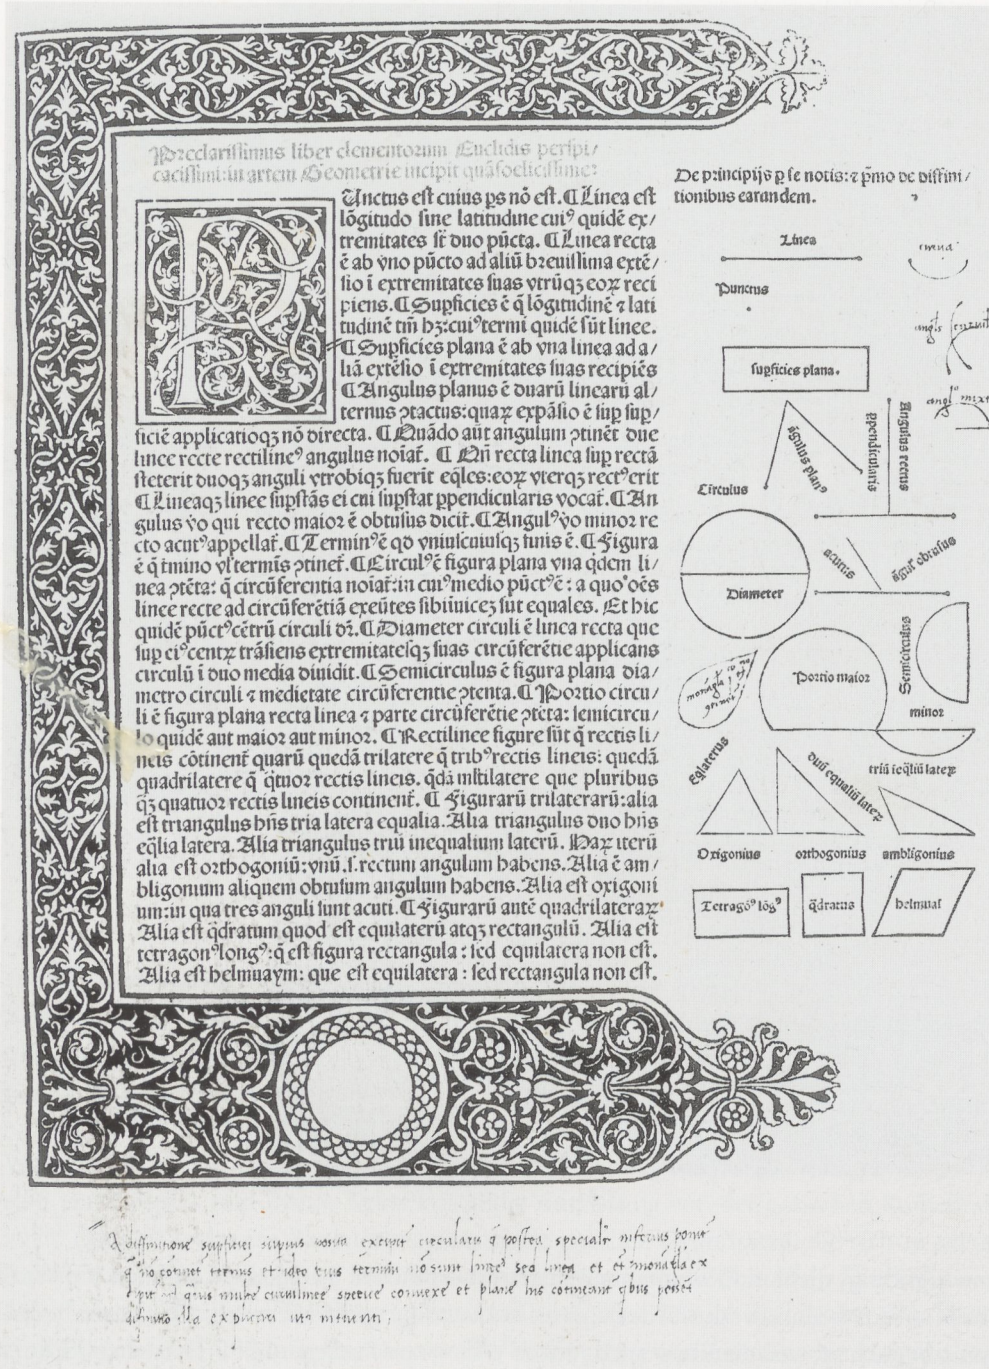 Preclarissimus liber elementorum Euclidis perspi/
cacissimi: in artem Geometrie incipit quãfoelicissime:
PUnctus est cuius ps nõ est. ¶ Linea est
lõgitudo sine latitudine cuiꝰ quidẽ ex/
tremitates st̃ duo pũcta. ¶ Linea recta
ẽ ab vno pũcto ad aliũ breuissima extẽ/
sio ĩ extremitates suas vtrũqꝫ eoꝝ reci
piens. ¶ Supficies ẽ q̃ lõgitudinẽ ⁊ lati
tudinẽ tm̃ hꝫ: cuiꝰ termi quidẽ sũt linee.
¶ Supficies plana ẽ ab vna linea ad a/
liã extẽsio ĩ extremitates suas recipiẽs
¶ Angulus planus ẽ duarũ linearũ al/
ternus ꝯtactus: quaꝝ expãsio ẽ sup sup/
ficiẽ applicatioqꝫ nõ directa. ¶ Quãdo aũt angulum ꝯtinẽt due
linee recte rectilineꝰ angulus noiat̃. ¶ Qñ recta linea sup rectã
steterit duoqꝫ anguli vtrobiqꝫ fuerit eq̃les: eoꝝ vterqꝫ rectꝰ erit
¶ Lineaqꝫ linee supstãs ei cui supstat ppendicularis vocat̃. ¶ An
gulus vo qui recto maior ẽ obtusus dicit̃. ¶ Angulꝰ vo minor re
cto acutꝰ appellat̃. ¶ Terminꝰ ẽ qd vniuscuiusqꝫ finis ẽ. ¶ Figura
ẽ q̃ tmino vl termis ꝯtinet̃. ¶ Circulꝰ ẽ figura plana vna q̃dem li/
nea ꝯtẽta: q̃ circũferentia noiat̃: in cuiꝰ medio pũctꝰ ẽ: a quo oẽs
linee recte ad circũferẽtiã exeũtes sibiinuiceꝫ sut equales. Et hic
quidẽ pũctꝰ cẽtrũ circuli dr̃. ¶ Diameter circuli ẽ linea recta que
sup eiꝰ centꝝ trãsiens extremitatesqꝫ suas circũferẽtie applicans
circulũ ĩ duo media diuidit. ¶ Semicirculus ẽ figura plana dia/
metro circuli ⁊ medietate circũferentie ꝯtenta. ¶ Portio circu/
li ẽ figura plana recta linea ⁊ parte circũferẽtie ꝯtẽta: semicircu/
lo quidẽ aut maior aut minor. ¶ Rectilinee figure sũt q̃ rectis li/
neis cõtinent̃ quarũ quedã trilatere q̃ tribꝰ rectis lineis: quedã
quadrilatere q̃ q̃tuor rectis lineis. q̃dã mltilatere que pluribus
q̃ꝫ quatuor rectis lineis continent̃. ¶ Figurarũ trilaterarũ: alia
est triangulus hñs tria latera equalia. Alia triangulus duo hñs
eq̃lia latera. Alia triangulus triũ inequalium laterũ. Haꝝ iterũ
alia est orthogoniũ: vnũ .s. rectum angulum habens. Alia ẽ am/
bligonium aliquem obtusum angulum habens. Alia est oxigoni
um: in qua tres anguli sunt acuti. ¶ Figurarũ autẽ quadrilateraꝝ
Alia est q̃dratum quod est equilaterũ atqꝫ rectangulũ. Alia est
tetragonꝰ longꝰ: q̃ est figura rectangula: sed equilatera non est.
Alia est helmuaym: que est equilatera: sed rectangula non est.
De principijs p se notis: ⁊ p̃mo de diffini/
tionibus earundem.
Linea
Punctus
supficies plana.
ãgulus planꝰ
ppendicularis
Angulus rectus
Circulus
Diameter
acutus
ãgulꝰ obtusus
Semicirculus
Portio maior
minor
Eq̃laterus
duũ equaliũ lateꝝ
triũ ieq̃liũ lateꝝ
Oxigonius
orthogonius
ambligonius
Tetragõꝰ lõgꝰ
q̃dratus
helmuai